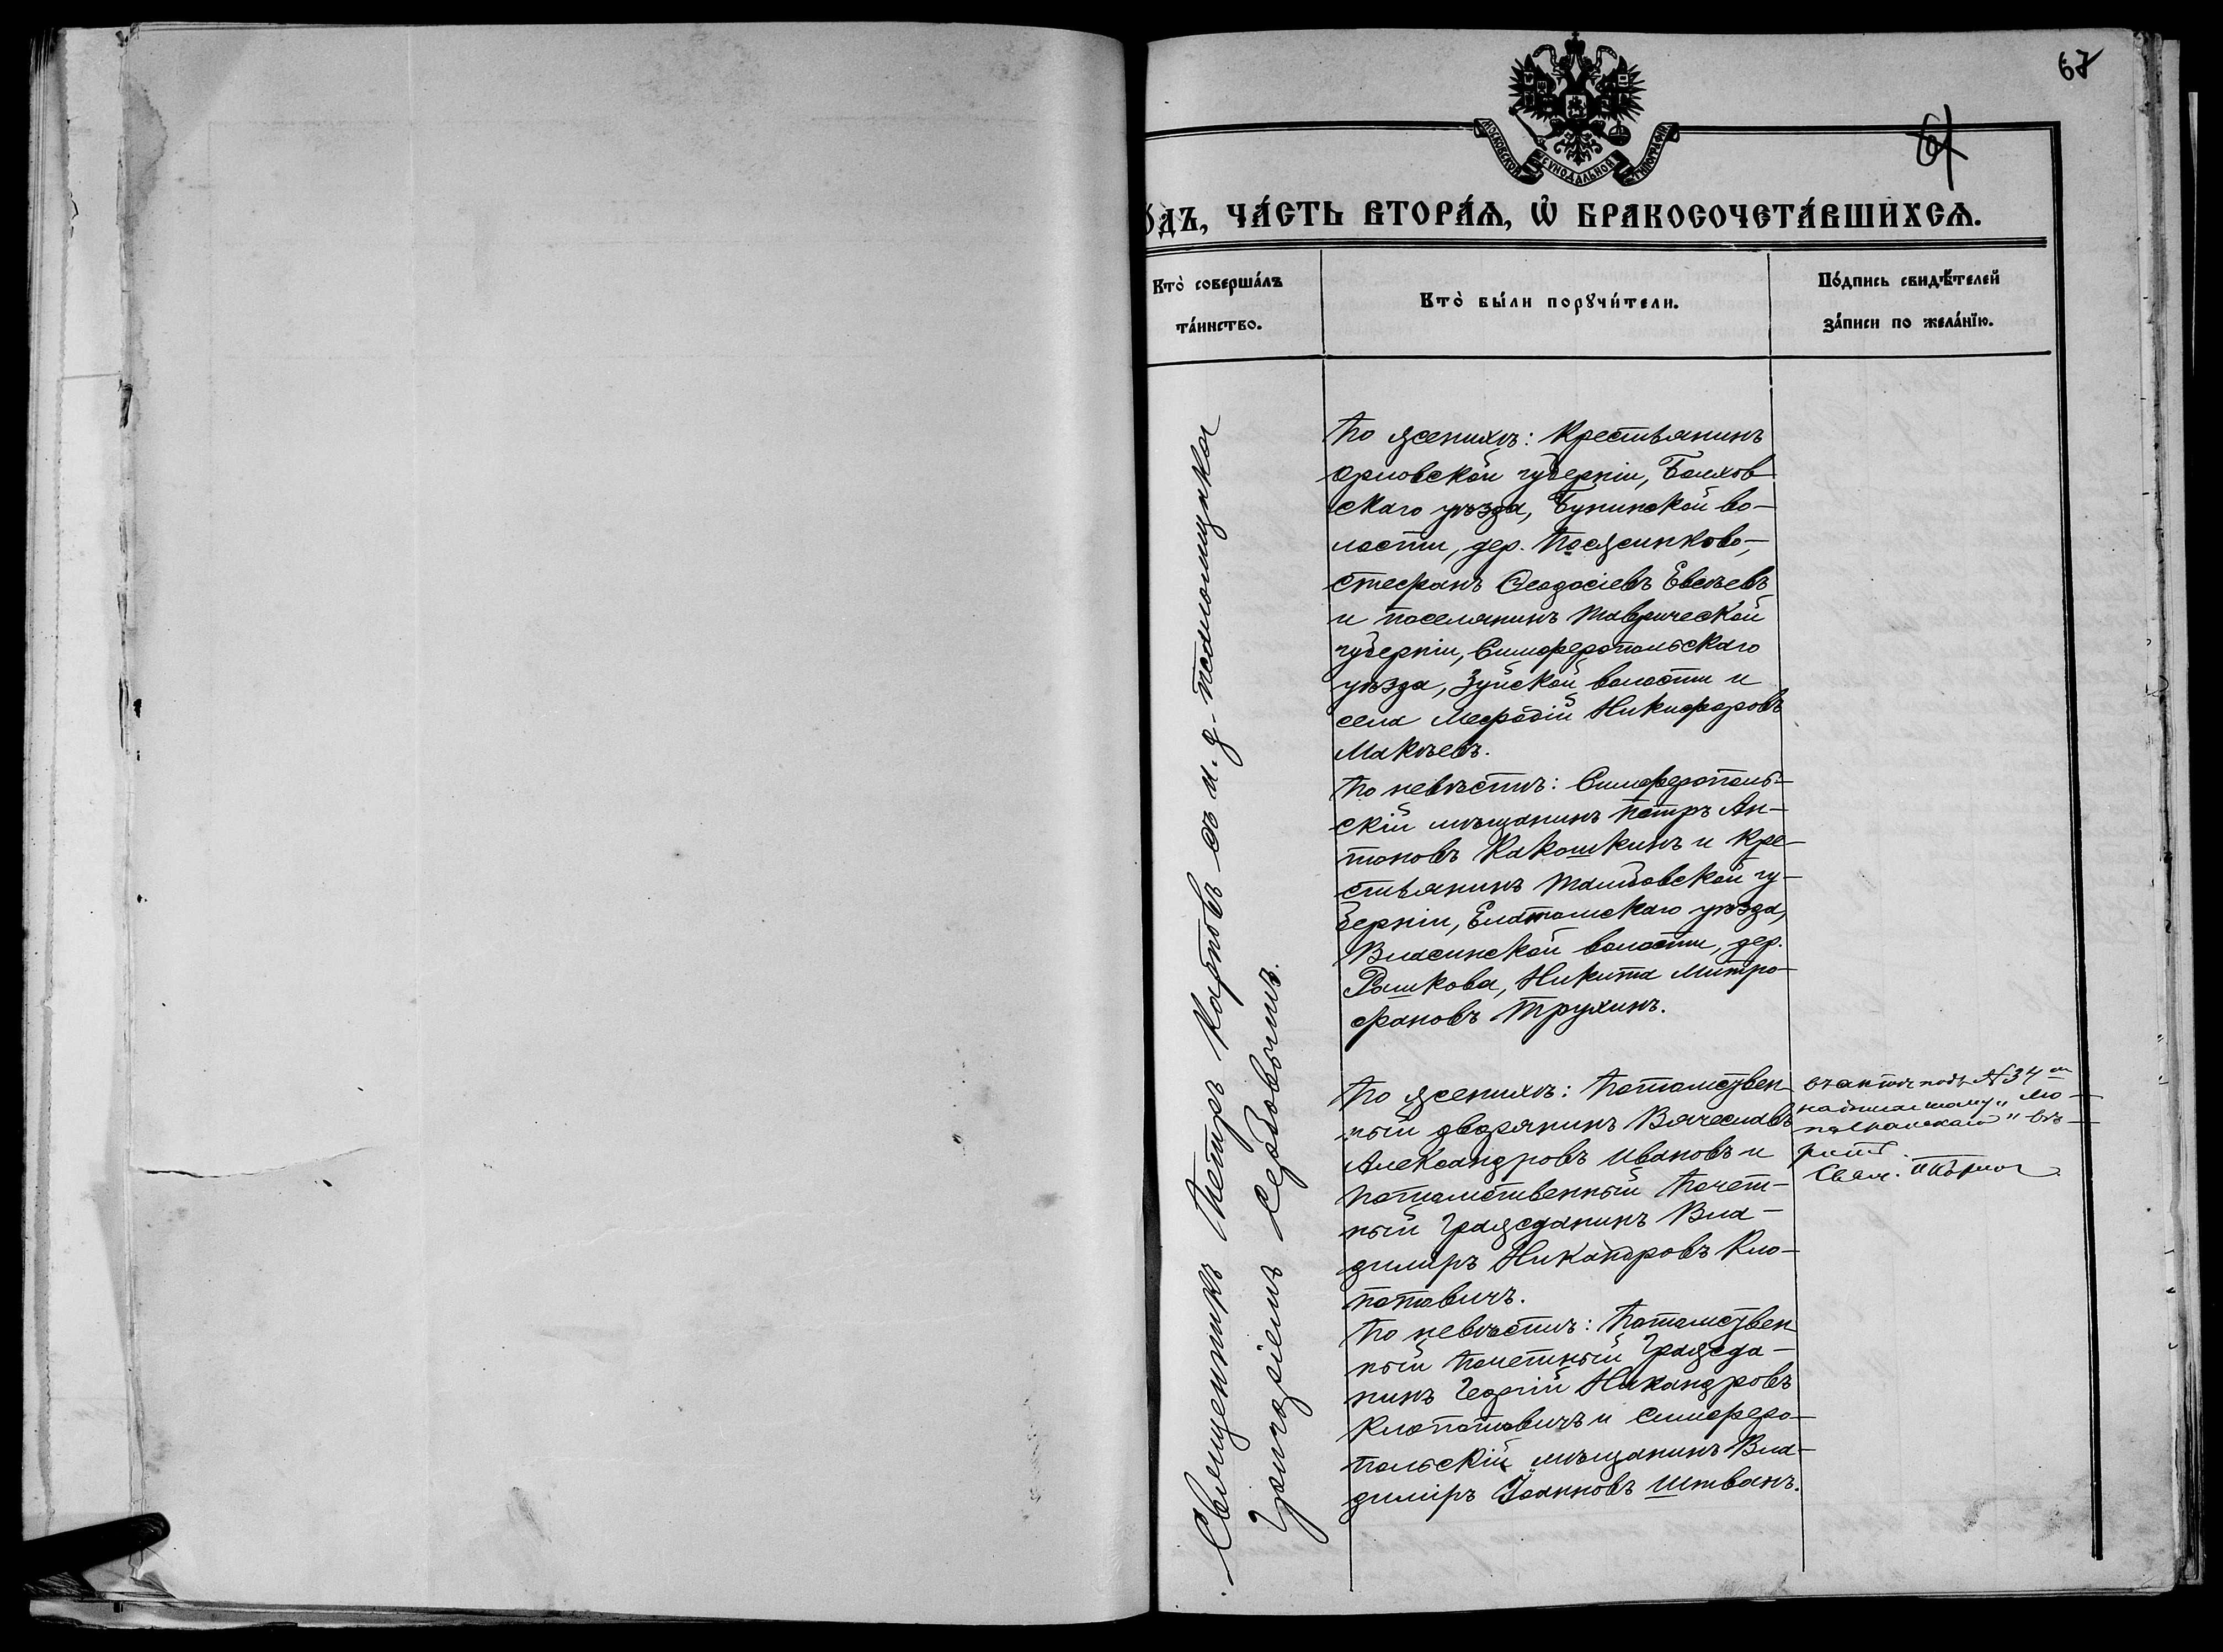 67
МОСКОВСКОЙ СѴНОДАЛЬНОЙ ТИПОГРАФІИ
О́ДЪ, ЧА́СТЬ ВТОРА́Ѧ, Ѡ҆ БРАКОСОЧЕТА́ВШИХСѦ.
Кто̀ соверша́лъ
та́инство.
Кто̀ бы́ли порꙋчи́тели.
По́дпись свидѣ́телей
за́писи по жела́нїю.
Священникъ Петръ Карповъ съ и. д. псаломщика
Григоріемъ Сербовымъ.
По женихѣ: Крестьянинъ
Орловской губерніи, Болхов
скаго уѣзда, Бунинской во-
лости, дер.
Стефанъ Феодосіевъ Евсѣевъ
и поселянинъ Таврической
губерніи, Симферопольскаго
уѣзда, Зуйской волости и
села Мефодій Никифоровъ
Макѣевъ.
По невѣстѣ: Симферополь-
скій мѣщанинъ Петръ Ан-
тоновъ Какошкинъ и Кре-
стьянинъ Тамбовской гу-
берніи, Елатомскаго уѣзда,
Власинской волости, дер.
Рашкова, Никита Митро-
фановъ Трухинъ.
По женихѣ: Потомствен
ный дворянинъ Вячеславъ
Александровъ Ивановъ и
Потомственный Почет-
ный Гражданинъ Вла-
димиръ Никандровъ Кло-
потовичъ.
По невѣстѣ: Потомствен
ный Почетный Гражда-
нинъ Георгій Никандровъ
Клопотовичъ и Симферо-
польскій мѣщанинъ Вла-
диміръ Іоанновъ Штванъ.
въ актѣ подъ № 34